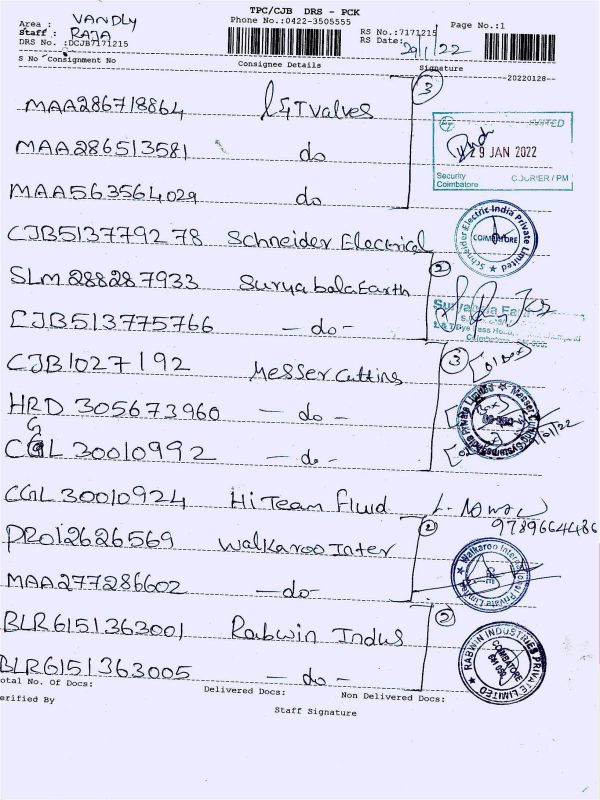 TPC/CJB DRS - PCK
Area : VANDLY
Phone No.:0422-3505555
Page No.:1
Staff : RAJA
RS No.:7171215
DRS No. :DCJB7171215
RS Date: 29/1/22
S No Consignment No
Consignee Details
Signature
--20220128--
3
MAA286718864 L&T Valves
MAA286513581 do
29 JAN 2022
Security COURIER / PM
Coimbatore
MAA563564029 do
CJB513779278 Schneider Electrical
Schneider Electric India Private Limited
COIMBATORE
2
SLM288287933 Suryabala Earth
CJB513775766 - do -
3
CJB1027192 Messer Cutting
HRD 305673960 - do -
CGL 30010992 - do -
CGL 30010924 Hi Team Fluid
9789664486
2
PRO12626569 Walkaroo Inter
Walkaroo International Private Limited
MAA277286602 - do -
2
BLR6151363001 Rabwin Indus
RABWIN INDUSTRIES PRIVATE LIMITED
COIMBATORE
BLR6151363005 - do -
otal No. Of Docs:
Delivered Docs:
Non Delivered Docs:
erified By
Staff Signature